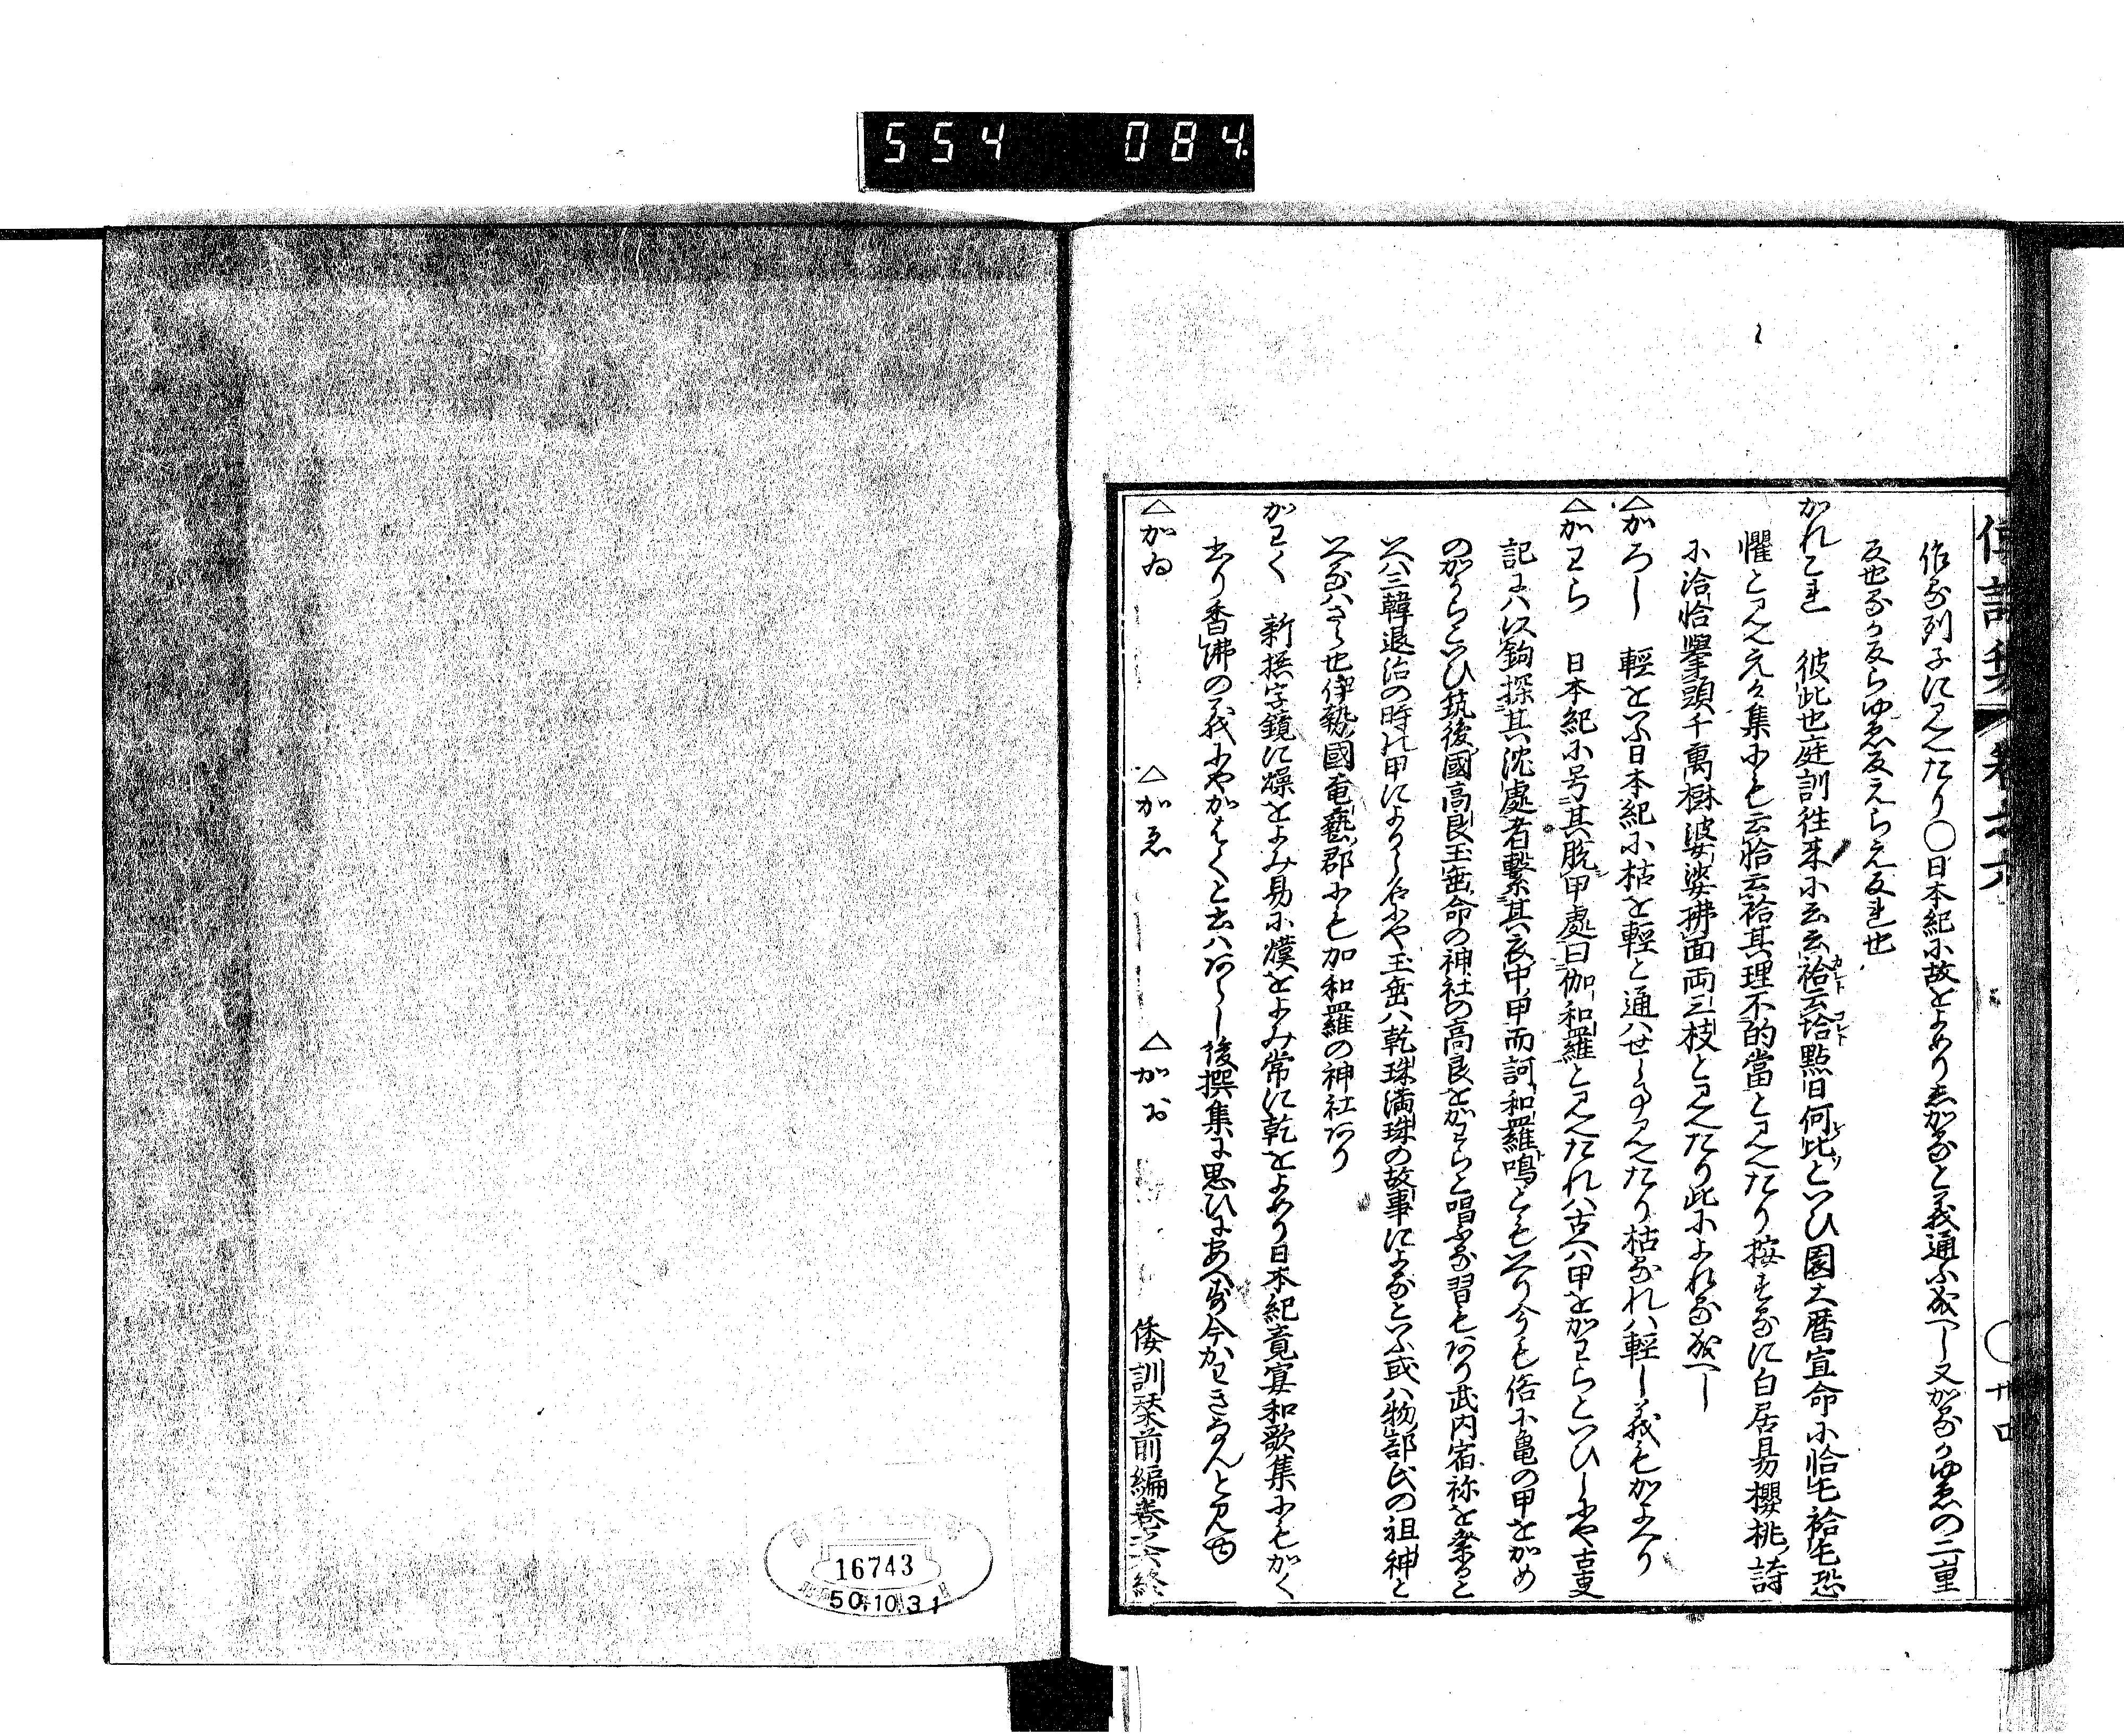 554 084
倭訓栞 卷之六 ○廿四
作る列子に見えたり○日本紀に故をよめりしかると義通ふ成へし又かるかゆゑの二重
反也るか反らゆゑ反えらえ反れ也
かれこれ 彼此也庭訓往来に云云袷云袷點曰何比といひ園太暦宣命に恰毛袷毛恐
懼と見え元々集にも云袷云袷其理不的當と見えたり按するに白居易櫻桃詩
に洽恰擧頭千萬樹婆娑拂面両三枝と見えたり此によれる成へし
△かろし 軽をいふ日本紀に枯を軽と通ハせし事見えたり枯るれハ軽し義もかよへり
△かわら 日本紀に号其脱甲處曰伽和羅と見えたれハ古へハ甲をかわらといひしにや古事
記にハ以鉤探其沈處者繋其衣中甲而訶和羅鳴ともいへり今も俗に亀の甲をかめ
のかうらといひ筑後國高良玉垂命の神社の高良をかわらと唱ふる習もあり武内宿祢を祭ると
いへハ三韓退治の時の甲によりし名にや玉垂ハ乾珠満珠の故事によるといふ或ハ物部氏の祖神と
いへるハさら也伊勢國奄藝郡にも加和羅の神社あり
かわく 新撰字鏡に燥をよみ易に熯をよみ常に乾をよめり日本紀竟宴和歌集にもかく
しり香沸の義にやかはくと書ハあしゝ後撰集に思ひにあへす今かわきなんと見ゆ
△かゐ △かゑ △かお 倭訓栞前編巻之六終
16743
50.10.31